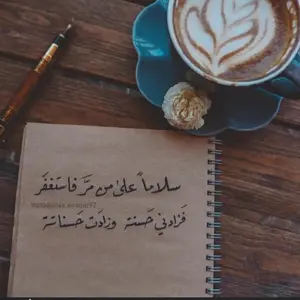 سلاماً على من مرَّ فاستغفَر
فَزادني حَسنة وزادَت حَسناته